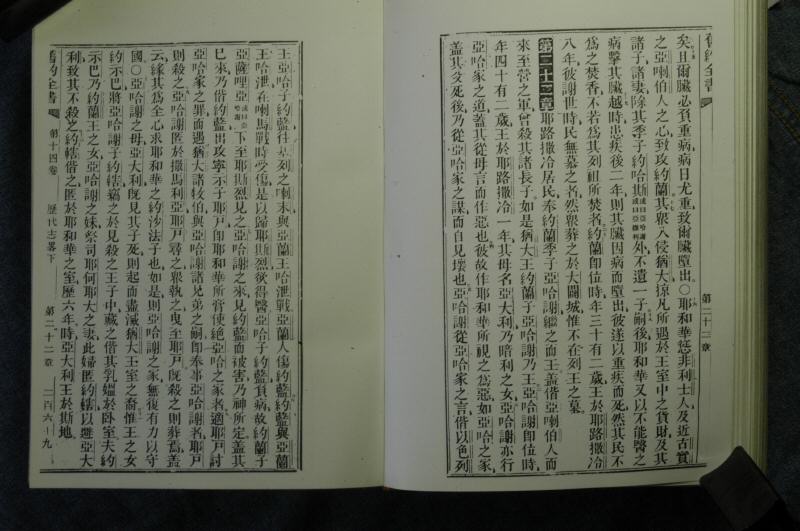 舊約全書
第二十二章
矣且爾臟必負重病病日尤重致爾臟墮出○耶和華惹非利士人及近古實
之亞喇伯人之心致攻約蘭其衆入侵猶大掠凡所遇於王室中之貨財及其
諸子諸妻除其季子約哈斯或曰亞哈謝或曰亞撒利外不遺一子嗣後耶和華又以不能醫之
病擊其臟越時患疾後二年則其臟因病而墮出彼遂以重疾而死然其民不
爲之焚香不若爲其列祖所焚者約蘭卽位時年三十有二歲王於耶路撒冷
八年彼謝世時民無慕之者然衆葬之於大闢城惟不在列王之墓
第二十二章耶路撒冷居民奉約蘭季子亞哈謝繼之而王蓋偕亞喇伯人而
來至營之軍曾殺其諸長子如是猶大王約蘭子亞哈謝乃王亞哈謝卽位時
年四十有二歲王於耶路撒冷一年其母名亞大利乃暗利之女亞哈謝亦行
亞哈家之道蓋其從母言而作惡也彼故作耶和華所視之爲惡如亞哈之家
蓋其父死後乃從亞哈家之謀而自見壞也亞哈謝從亞哈家之言偕以色列
王亞哈子約藍往基列之喇末與亞蘭王哈泄戰亞蘭人傷約藍約藍與亞蘭
王哈泄在喇馬戰時受傷是以歸耶斯烈欲得醫亞哈子約藍負病故約蘭子
亞薩哩亞或曰亞哈謝下至耶斯烈見之亞哈謝之來見約藍而被害乃神所定蓋其
已來乃偕約藍出攻寧示子耶戶卽耶和華所膏使絕亞哈之家者適耶戶討
亞哈家之罪而遇猶大諸牧伯與亞哈謝諸兄弟之嗣卽奉事亞哈謝者耶戶
則殺之亞哈謝匿於撒馬利亞耶戶尋之衆執之曳至耶戶旣殺之則葬焉蓋
云緣其爲全心求耶和華之約沙法子也如是則亞哈謝之家無復有力以守
國○亞哈謝之母亞大利旣見其子死則起而盡滅猶大王室之裔惟王之女
約示巴將亞哈謝子約轄竊之於見殺之王子中藏之偕其乳媼於臥室夫約
示巴乃約蘭王之女亞哈謝之妹祭司耶何耶大之妻此婦匿約轄以避亞大
利致其不殺之約轄偕之匿於耶和華之室歷六年時亞大利王於斯地
舊約全書
第十四卷
歷代志畧下
第二十二章
二百六十九